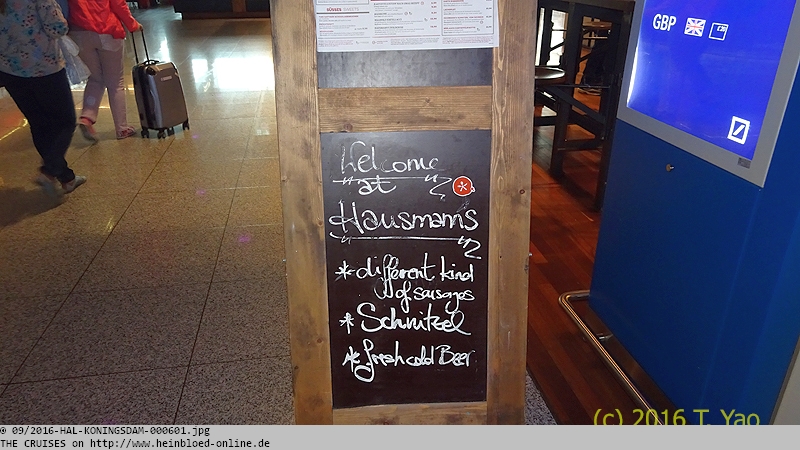 SÜSSES SWEETS
GBP
Welcome
at
Hausmann's
* different kind
of sausages
* Schnitzel
* fresh cold Beer
(c) 2016 T. Yao
© 09/2016-HAL-KONINGSDAM-000601.jpg
THE CRUISES on http://www.heinbloed-online.de